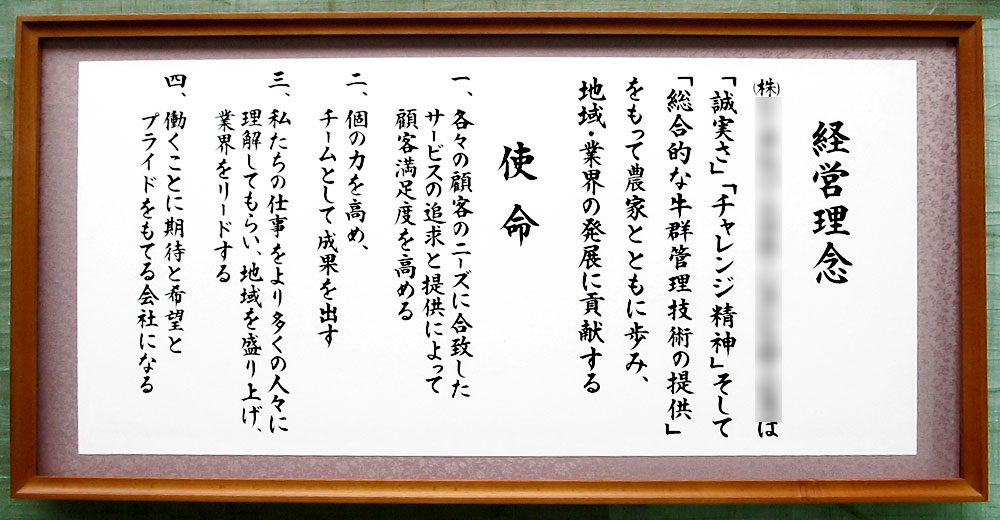 経営理念
㈱
は
「誠実さ」「チャレンジ精神」そして
「総合的な牛群管理技術の提供」
をもって農家とともに歩み、
地域・業界の発展に貢献する
使命
一、各々の顧客のニーズに合致した
サービスの追求と提供によって
顧客満足度を高める
二、個の力を高め、
チームとして成果を出す
三、私たちの仕事をより多くの人々に
理解してもらい、地域を盛り上げ、
業界をリードする
四、働くことに期待と希望と
プライドをもてる会社になる